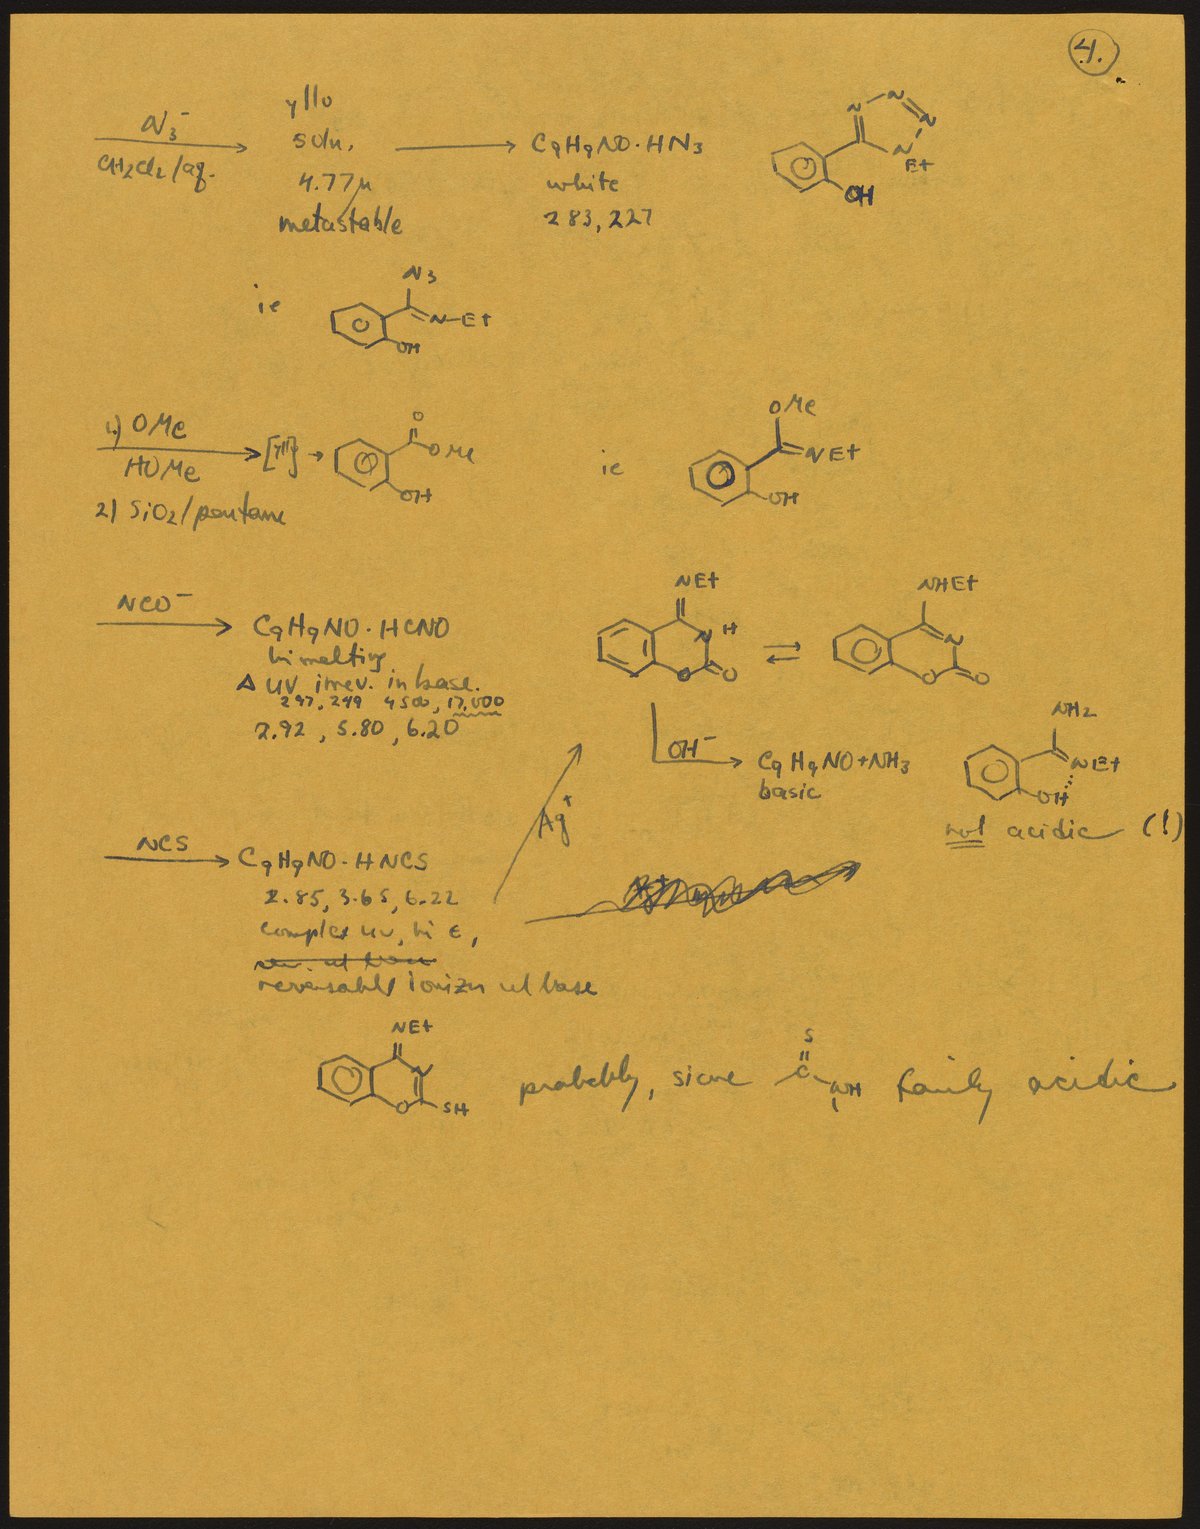 4.
N3⁻
CH2Cl2/aq.
yllo
soln.
4.77μ
metastable
C9H9NO·HN3
white
283, 227
N N N N Et
OH
ie
N3
N-Et
OH
1.) OMe
HOMe
2) SiO2/pentane
[yll]
O
OMe
OH
ie
OMe
NEt
OH
NCO⁻
C9H9NO·HCNO
hi melting
Δ UV irrev. in base.
297, 249 4500, 17,000
2.92, 5.80, 6.20
NEt
N H
O O
NHEt
N
O O
OH⁻
C9H9NO+NH3
basic
NH2
NEt
OH
not acidic (!)
Ag⁺
NCS
C9H9NO·HNCS
2.85, 3.65, 6.22
complex uv, hi ε,
reversable ionizn w/ base
NEt
N
O SH
probably, since
S
C
NH
fairly acidic